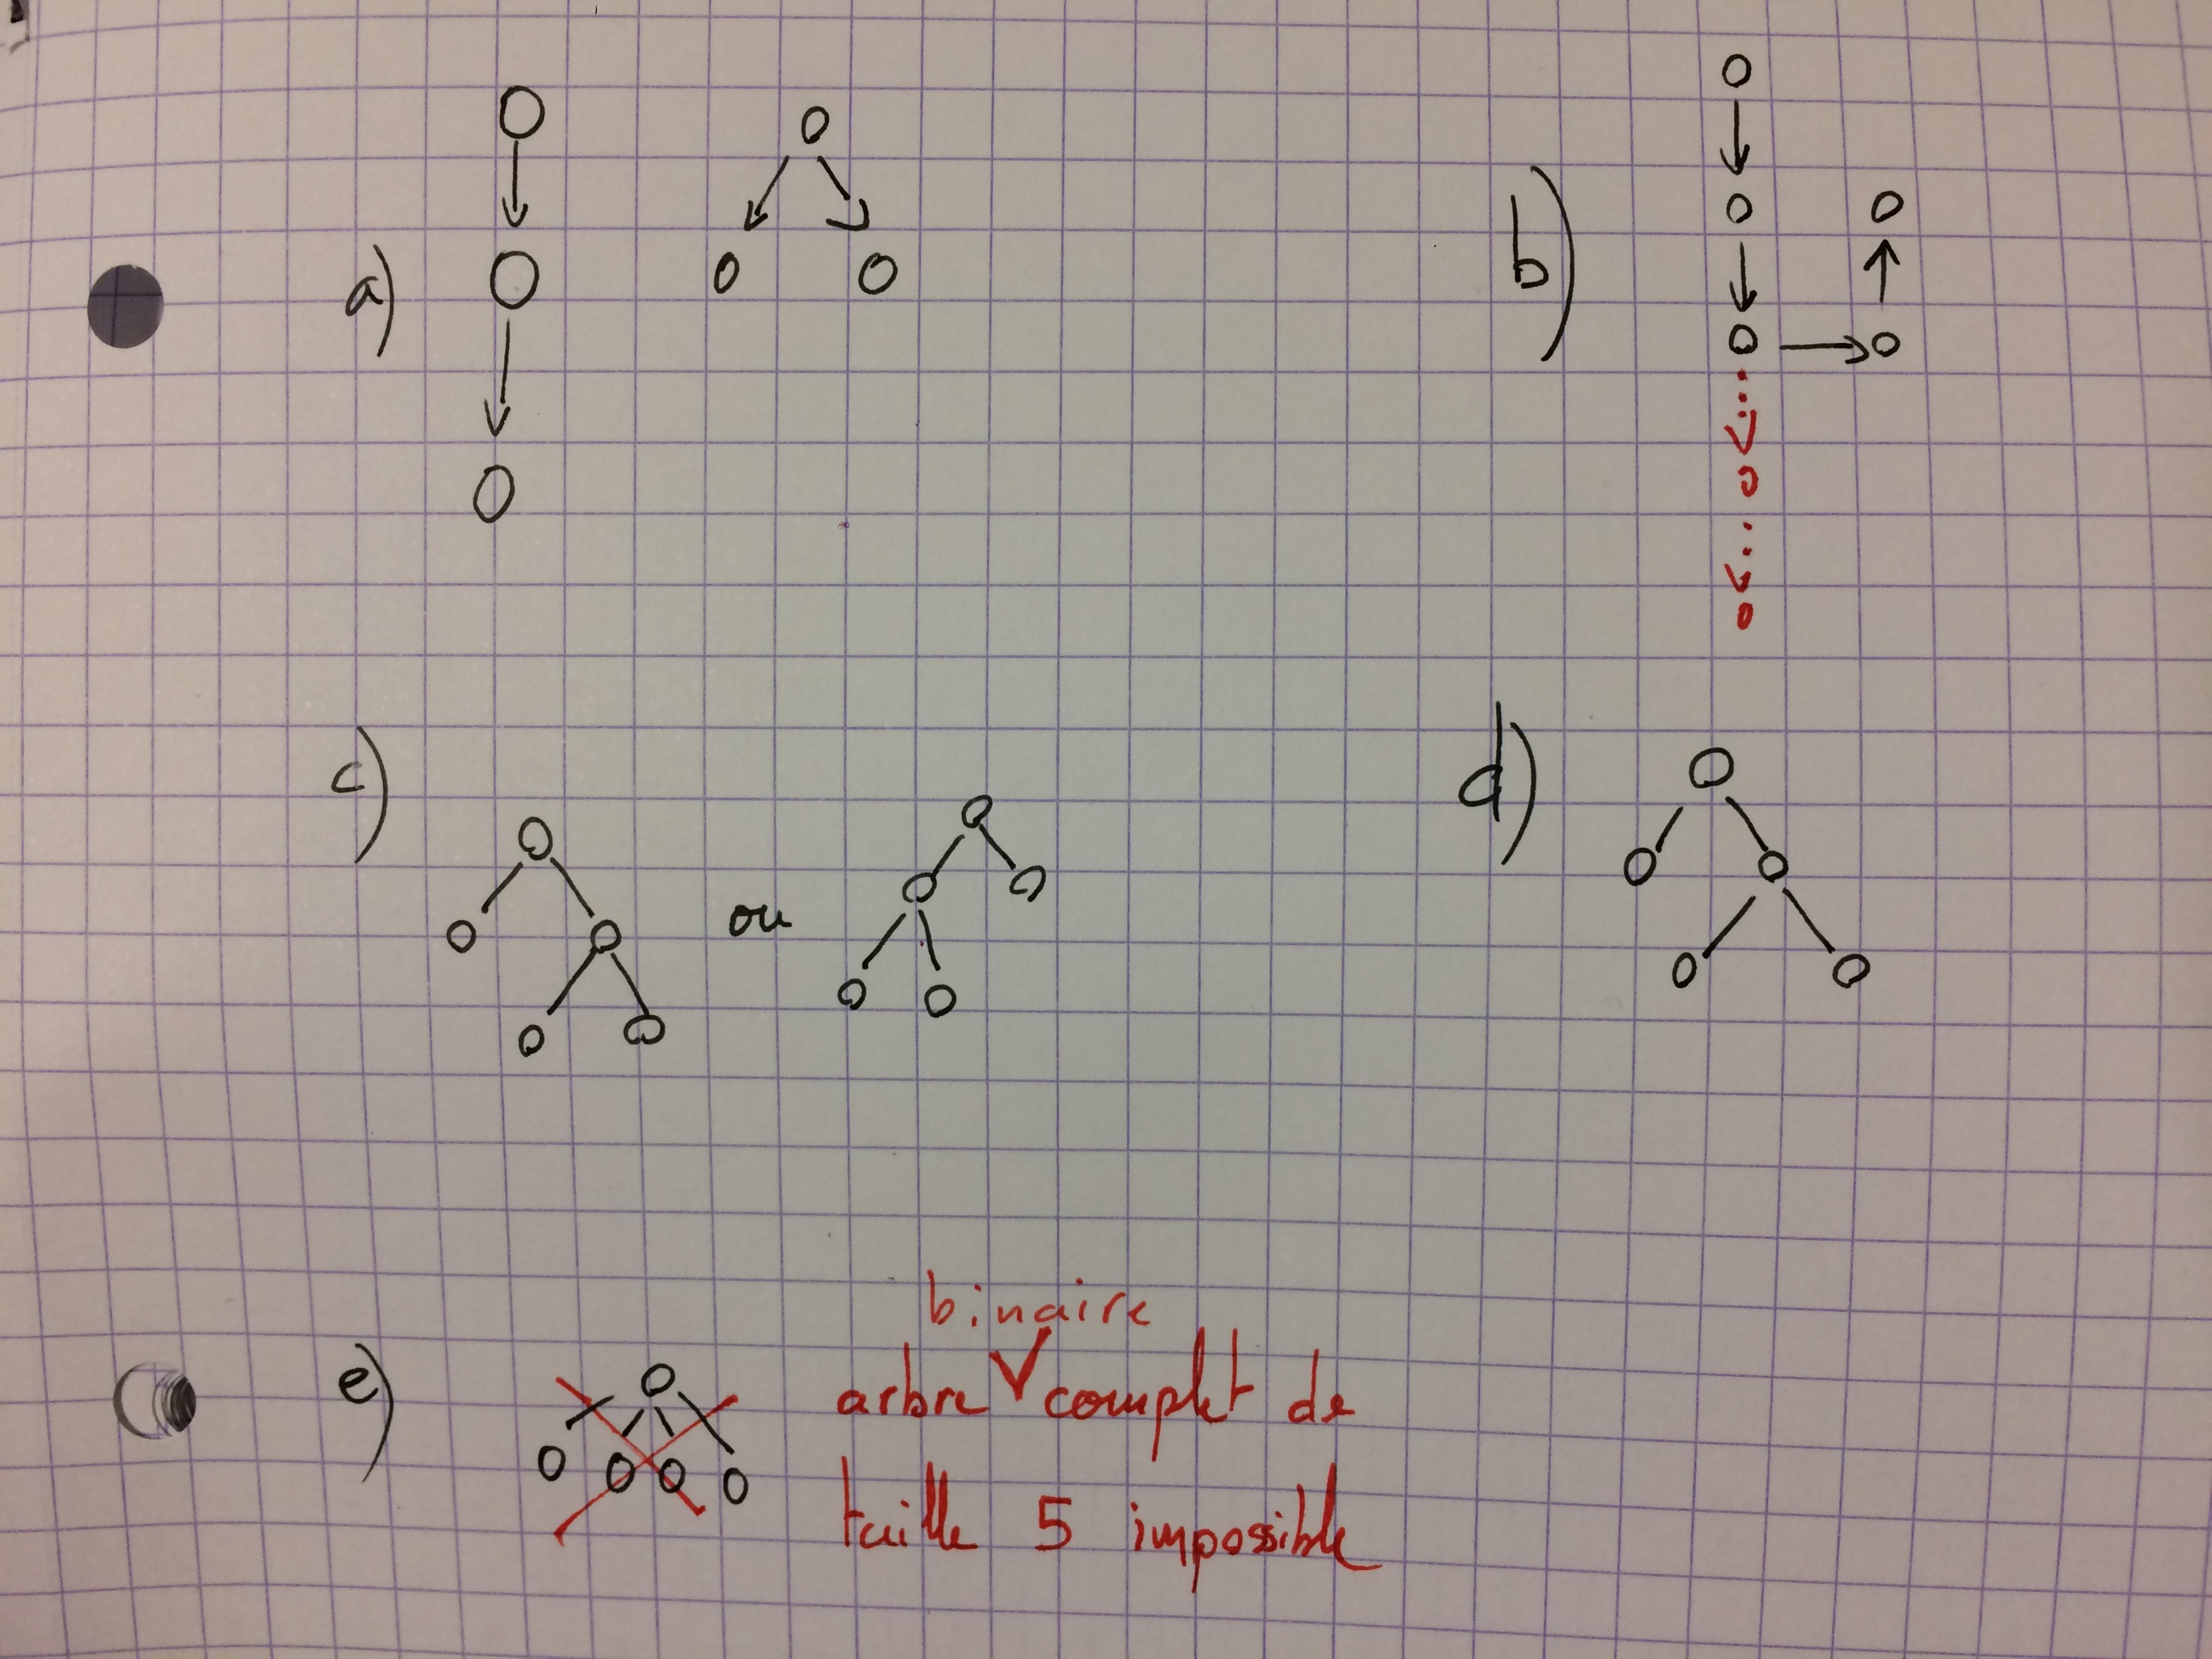 a)
b)
c)
ou
d)
e)
binaire
arbre complet de
taille 5 impossible